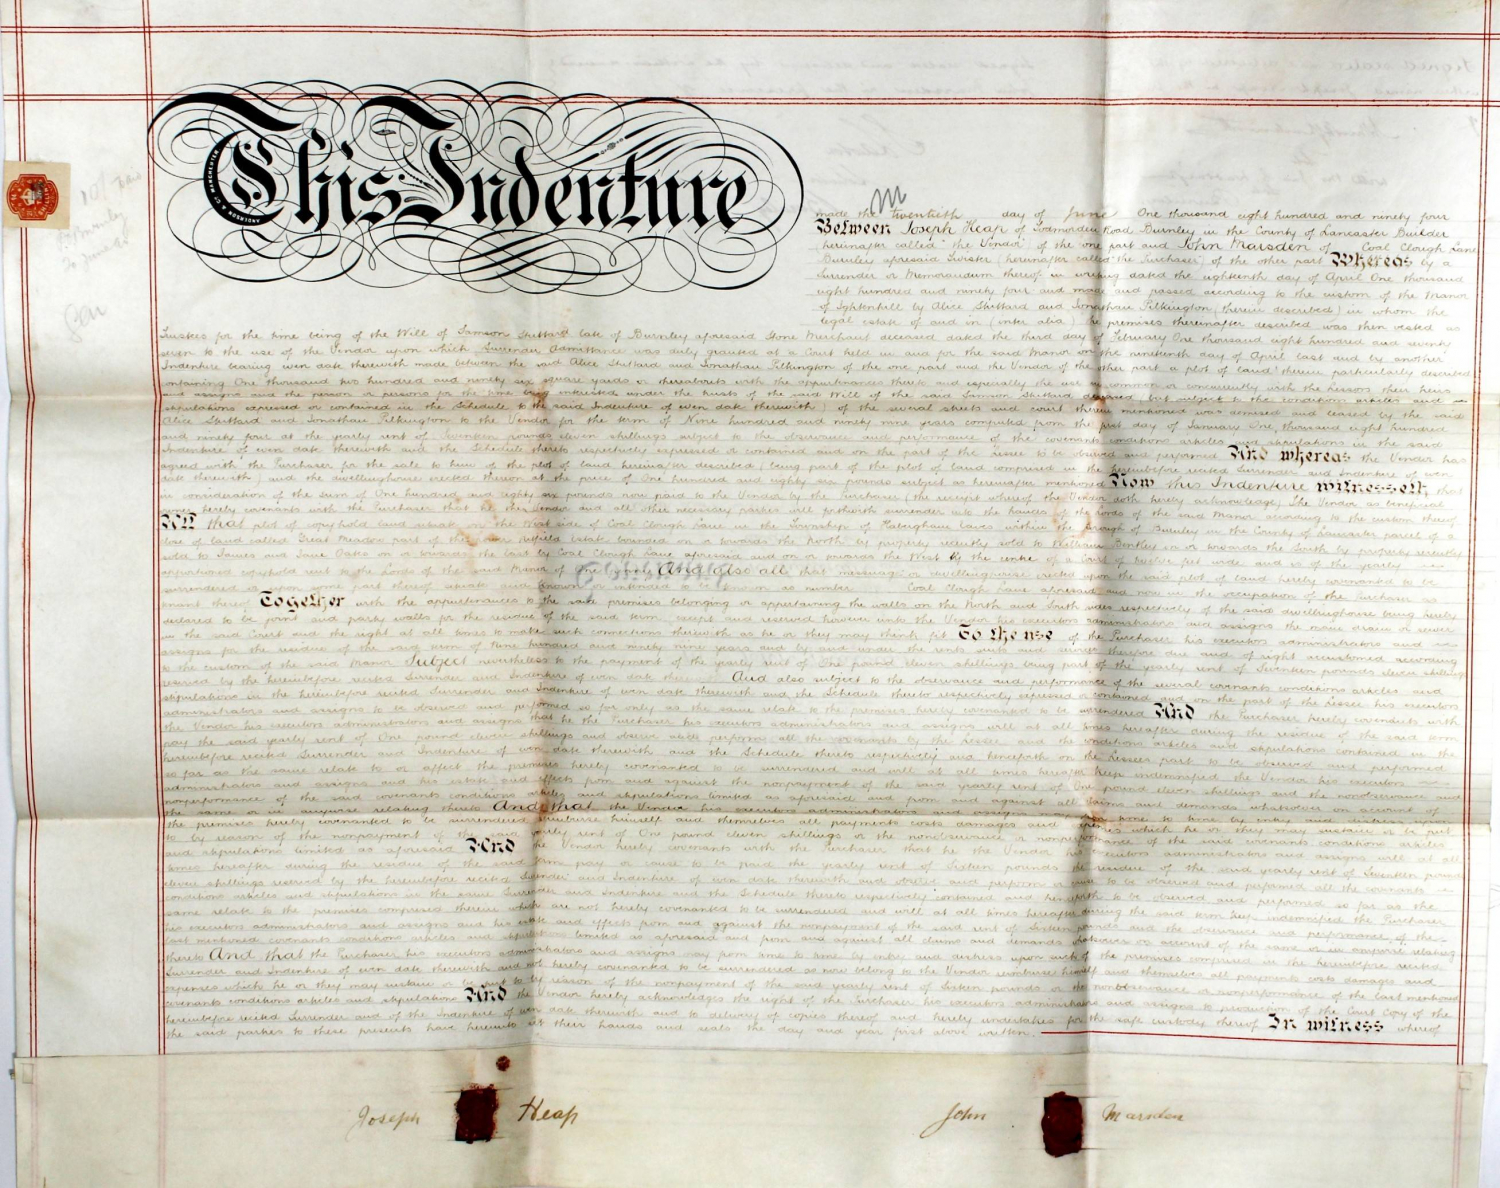 This Indenture
ANDERSON & Co MANCHESTER
made the twentieth day of June One thousand eight hundred and ninety four
Between Joseph Heap of Todmorden Road Burnley in the County of Lancaster Builder
(hereinafter called "the Vendor" of the one part and John Marsden of Coal Clough Lane
Burnley aforesaid Twister (hereinafter called "the Purchaser") of the other part Whereas by a
Surrender or Memorandum thereof in writing dated the eighteenth day of April One thousand
eight hundred and ninety four and made and passed according to the custom of the Manor
of Ightenhill by Alice Shuttard and Jonathan Pilkington (therein described) in whom the
legal estate of and in (inter alia) the premises thereinafter described was then vested as
Trustees for the time being of the Will of Samson Shuttard late of Burnley aforesaid Stone Merchant deceased dated the third day of February One thousand eight hundred and seventy
seven to the use of the Vendor upon which Surrender Admittance was duly granted at a Court held in and for the said Manor on the nineteenth day of April last and by another
Indenture bearing even date therewith made between the said Alice Shuttard and Jonathan Pilkington of the one part and the Vendor of the other part a plot of land therein particularly described
containing One thousand two hundred and ninety six square yards or thereabouts with the appurtenances thereto and especially the use in common or concurrently with the lessors their heirs
and assigns and the person or persons for the time being interested under the trusts of the said Will of the said Samson Shuttard deceased (but subject to the conditions articles and
stipulations expressed or contained in the Schedule to the said Indenture of even date therewith) of the several streets and court therein mentioned was demised and leased by the said
Alice Shuttard and Jonathan Pilkington to the Vendor for the term of Nine hundred and ninety nine years computed from the first day of January One thousand eight hundred
and ninety four at the yearly rent of Seventeen pounds eleven shillings subject to the observance and performance of the covenants conditions articles and stipulations in the said
Indenture of even date therewith and the Schedule thereto respectively expressed or contained and on the part of the lessee to be observed and performed And whereas the Vendor has
agreed with the Purchaser for the sale to him of the plot of land hereinafter described (being part of the plot of land comprised in the hereinbefore recited Surrender and Indenture of even
date therewith) and the dwellinghouse erected thereon at the price of One hundred and eighty six pounds subject as hereinafter mentioned Now this Indenture witnesseth that
in consideration of the sum of One hundred and eighty six pounds now paid to the Vendor by the Purchaser (the receipt whereof the Vendor doth hereby acknowledge) The Vendor as beneficial
owner hereby covenants with the Purchaser that he the Vendor and all other necessary parties will forthwith surrender into the hands of the Lords of the said Manor according to the custom thereof
All that plot of copyhold land situate on the West side of Coal Clough Lane in the Township of Habergham Eaves within the Borough of Burnley in the County of Lancaster parcel of a
close of land called Great Meadow part of the estate bounded on or towards the North by property recently sold to William Bentley on or towards the South by property recently
sold to James and Jane Oates on or towards the East by Coal Clough Lane aforesaid and on or towards the West by the centre of a Court of twelve feet wide and is of the yearly
apportioned copyhold rent to the Lords of the said Manor of One And also all that messuage or dwellinghouse erected upon the said plot of land hereby covenanted to be
surrendered or upon some part thereof situate and known or intended to be known as number Coal Clough Lane aforesaid and now in the occupation of the Purchaser as
tenant thereof Together with the appurtenances to the said premises belonging or appertaining the walls on the North and South sides respectively of the said dwellinghouse being hereby
declared to be joint and party walls for the residue of the said term except and reserved however unto the Vendor his executors administrators and assigns the main drain or sewer
in the said Court and the right at all times to make such connections therewith as he or they may think fit To the use of the Purchaser his executors administrators and
assigns for the residue of the said term of Nine hundred and ninety nine years and by and under the rents suits and services therefore due and of right accustomed according
to the custom of the said Manor Subject nevertheless to the payment of the yearly rent of One pound eleven shillings being part of the yearly rent of Seventeen pounds eleven shillings
reserved by the hereinbefore recited Surrender and Indenture of even date therewith And also subject to the observance and performance of the several covenants conditions articles and
stipulations in the hereinbefore recited Surrender and Indenture of even date therewith and the Schedule thereto respectively expressed or contained and on the part of the lessee his executors
administrators and assigns to be observed and performed so far only as the same relate to the premises hereby covenanted to be surrendered And the Purchaser hereby covenants with
the Vendor his executors administrators and assigns that he the Purchaser his executors administrators and assigns will at all times hereafter during the residue of the said term
pay the said yearly rent of One pound eleven shillings and observe and perform all the covenants by the Lessee and the conditions articles and stipulations contained in the
hereinbefore recited Surrender and Indenture of even date therewith and the Schedule thereto respectively and henceforth on the Lessees part to be observed and performed
so far as the same relate to or affect the premises hereby covenanted to be surrendered and will at all times hereafter keep indemnified the Vendor his executors
administrators and assigns and his estate and effects from and against the nonpayment of the said yearly rent of One pound eleven shillings and the nonobservance and
nonperformance of the said covenants conditions articles and stipulations limited as aforesaid and from and against all claims and demands whatsoever on account of
the same or in anywise relating thereto And that the Vendor his executors administrators and assigns may from time to time by entry and distress upon
the premises hereby covenanted to be surrendered reimburse himself and themselves all payments costs damages and expenses which he or they may sustain or be put
to by reason of the nonpayment of the said yearly rent of One pound eleven shillings or the nonobservance or nonperformance of the said covenants conditions articles
and stipulations limited as aforesaid And the Vendor hereby covenants with the Purchaser that he the Vendor his executors administrators and assigns will at all
times hereafter during the residue of the said term pay or cause to be paid the yearly rent of Sixteen pounds the residue of the said yearly rent of Seventeen pounds
eleven shillings reserved by the hereinbefore recited Surrender and Indenture of even date therewith and observe and perform or cause to be observed and performed all the covenants
conditions articles and stipulations in the same Surrender and Indenture and the Schedule thereto respectively contained and henceforth to be observed and performed so far as the
same relate to the premises comprised therein which are not hereby covenanted to be surrendered and will at all times hereafter during the said term keep indemnified the Purchaser
his executors administrators and assigns and his estate and effects from and against the nonpayment of the said rent of Sixteen pounds and the observance and performance of the
last mentioned covenants conditions articles and stipulations limited as aforesaid and from and against all claims and demands whatsoever on account of the same or in anywise relating
thereto And that the Purchaser his executors administrators and assigns may from time to time by entry and distress upon such of the premises comprised in the hereinbefore recited
Surrender and Indenture of even date therewith and not hereby covenanted to be surrendered as now belong to the Vendor reimburse himself and themselves all payments costs damages and
expenses which he or they may sustain or be put to by reason of the nonpayment of the said yearly rent of Sixteen pounds or the nonobservance or nonperformance of the last mentioned
covenants conditions articles and stipulations And the Vendor hereby acknowledges the right of the Purchaser his executors administrators and assigns to production of the Court Copy of the
hereinbefore recited Surrender and of the Indenture of even date therewith and to delivery of copies thereof and hereby undertakes for the safe custody thereof In witness whereof
the said parties to these presents have hereunto set their hands and seals the day and year first above written.
Joseph Heap
John Marsden